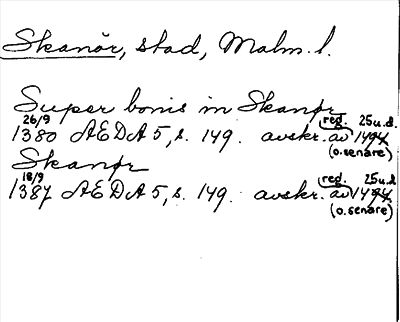 Skanör, stad, Malm. l.
Super bonis in Skanør
26/9 reg. 25 u. d.
1380 AEDA 5, s. 149. avskr. av 1494
(o. senare)
Skanør
18/9 reg. 25 u. d.
1387 AEDA 5, s. 149. avskr. av 1494
(o. senare)